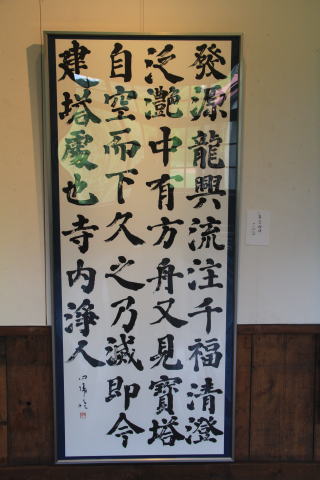 發源龍興流注千福清澄
泛灔中有方舟又見寶塔
自空而下久之乃滅即今
建塔處也寺内淨人